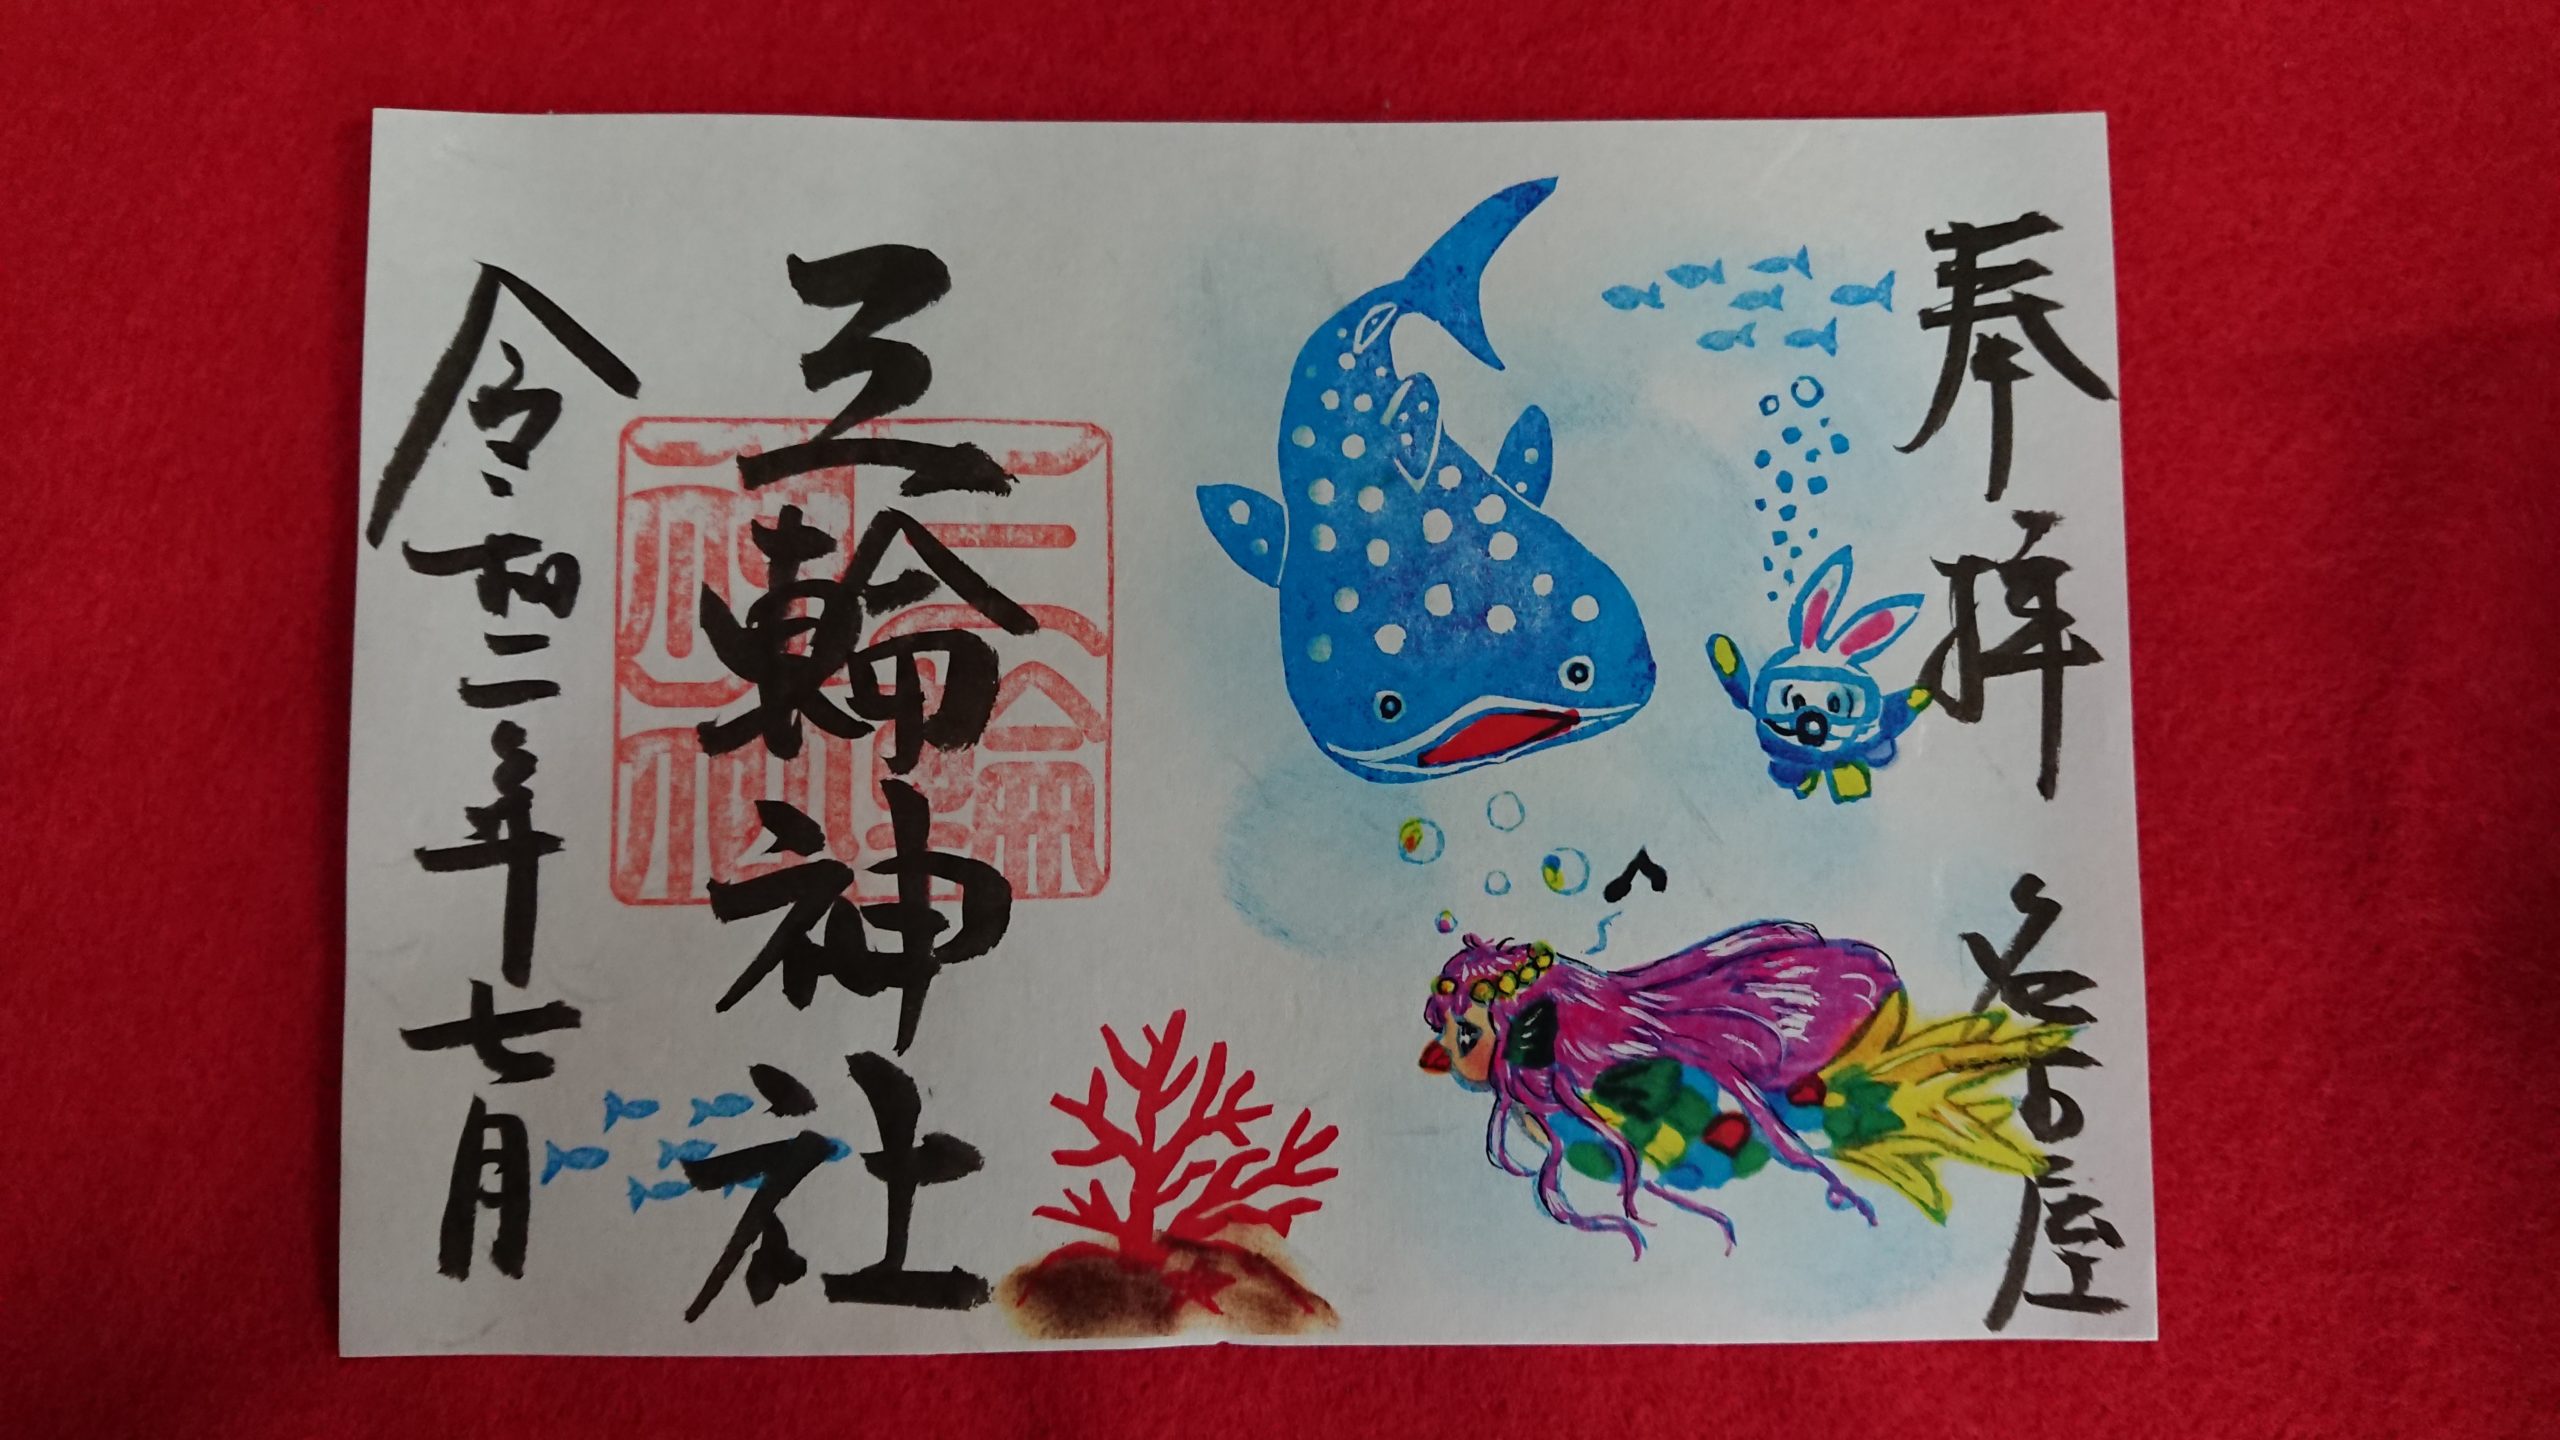 奉拝 名古屋
三輪神社
三輪神社
令和二年七月